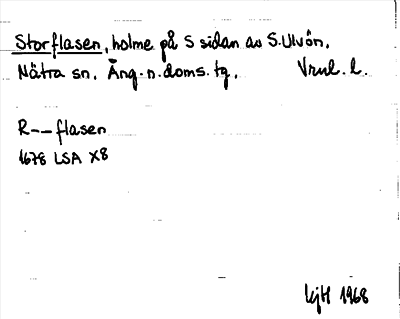 Storflasen, holme på S sidan av S. Ulvön.
Nätra sn. Ång. n. doms. tg. Vrnl. l.
R--flasen
1678 LSA X8
kjH 1968